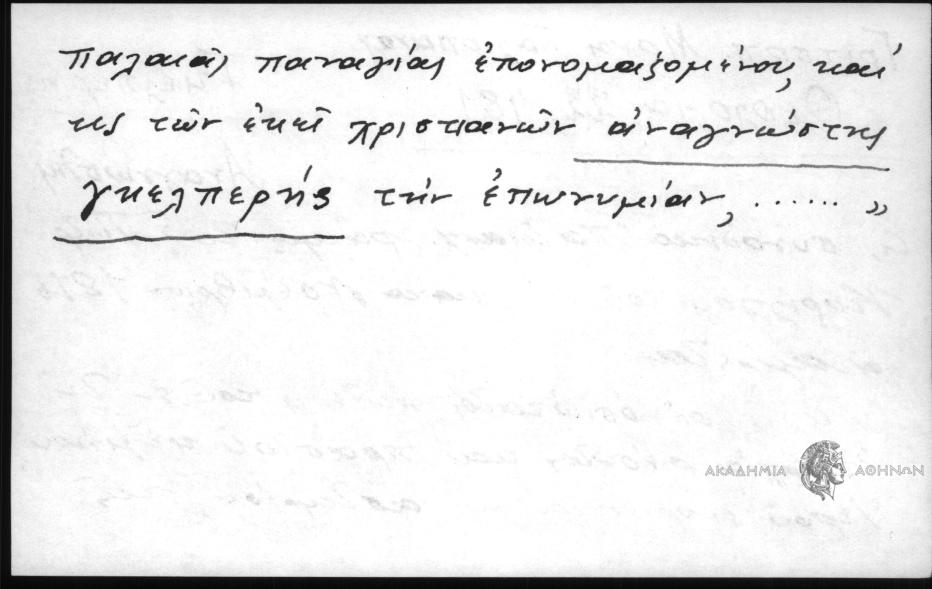 παλαιᾶς παναγίας ἐπονομαζομένου, καὶ
εἷς τῶν ἐκεῖ χριστιανῶν ἀναγνώστης
γκελπερής τὴν ἐπωνυμίαν, ...... »
ΑΚΑΔΗΜΙΑ ΑΘΗΝΩΝ